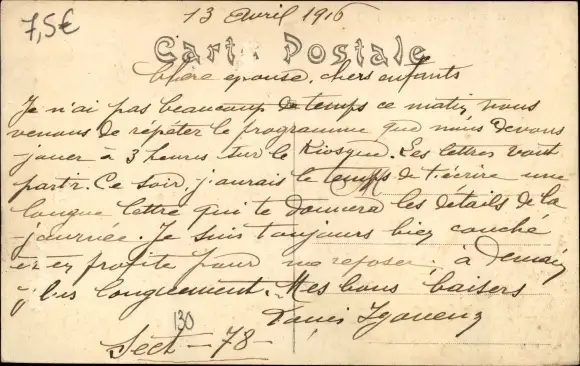 7,5€
13 Avril 1916
Carte Postale
Chère épouse, chers enfants
Je n'ai pas beaucoup de temps ce matin nous
venons de répéter le programme que nous devons
jouer à 3 heures sur le Kiosque. Les lettres vont
partir. Ce soir, j'aurais le temps de t'écrire une
longue lettre qui te donnera les détails de la
journée. Je suis toujours bien couché
et en profite pour me reposer. à demain
longuement. Mes bons baisers
Louis
130
Sect - 78 -